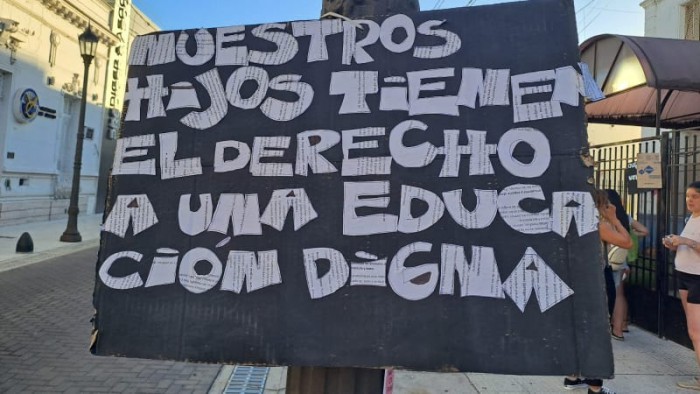 NUESTROS
HIJOS TIENEN
EL DERECHO
A UNA EDUCA
CIÓN DIGNA